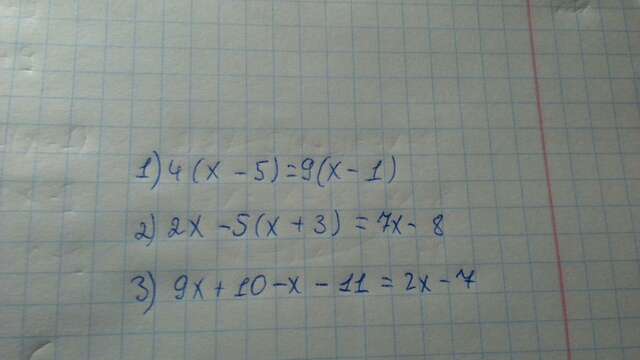 1) 4(x - 5) = 9(x - 1)
2) 2x - 5(x + 3) = 7x - 8
3) 9x + 10 - x - 11 = 2x - 7